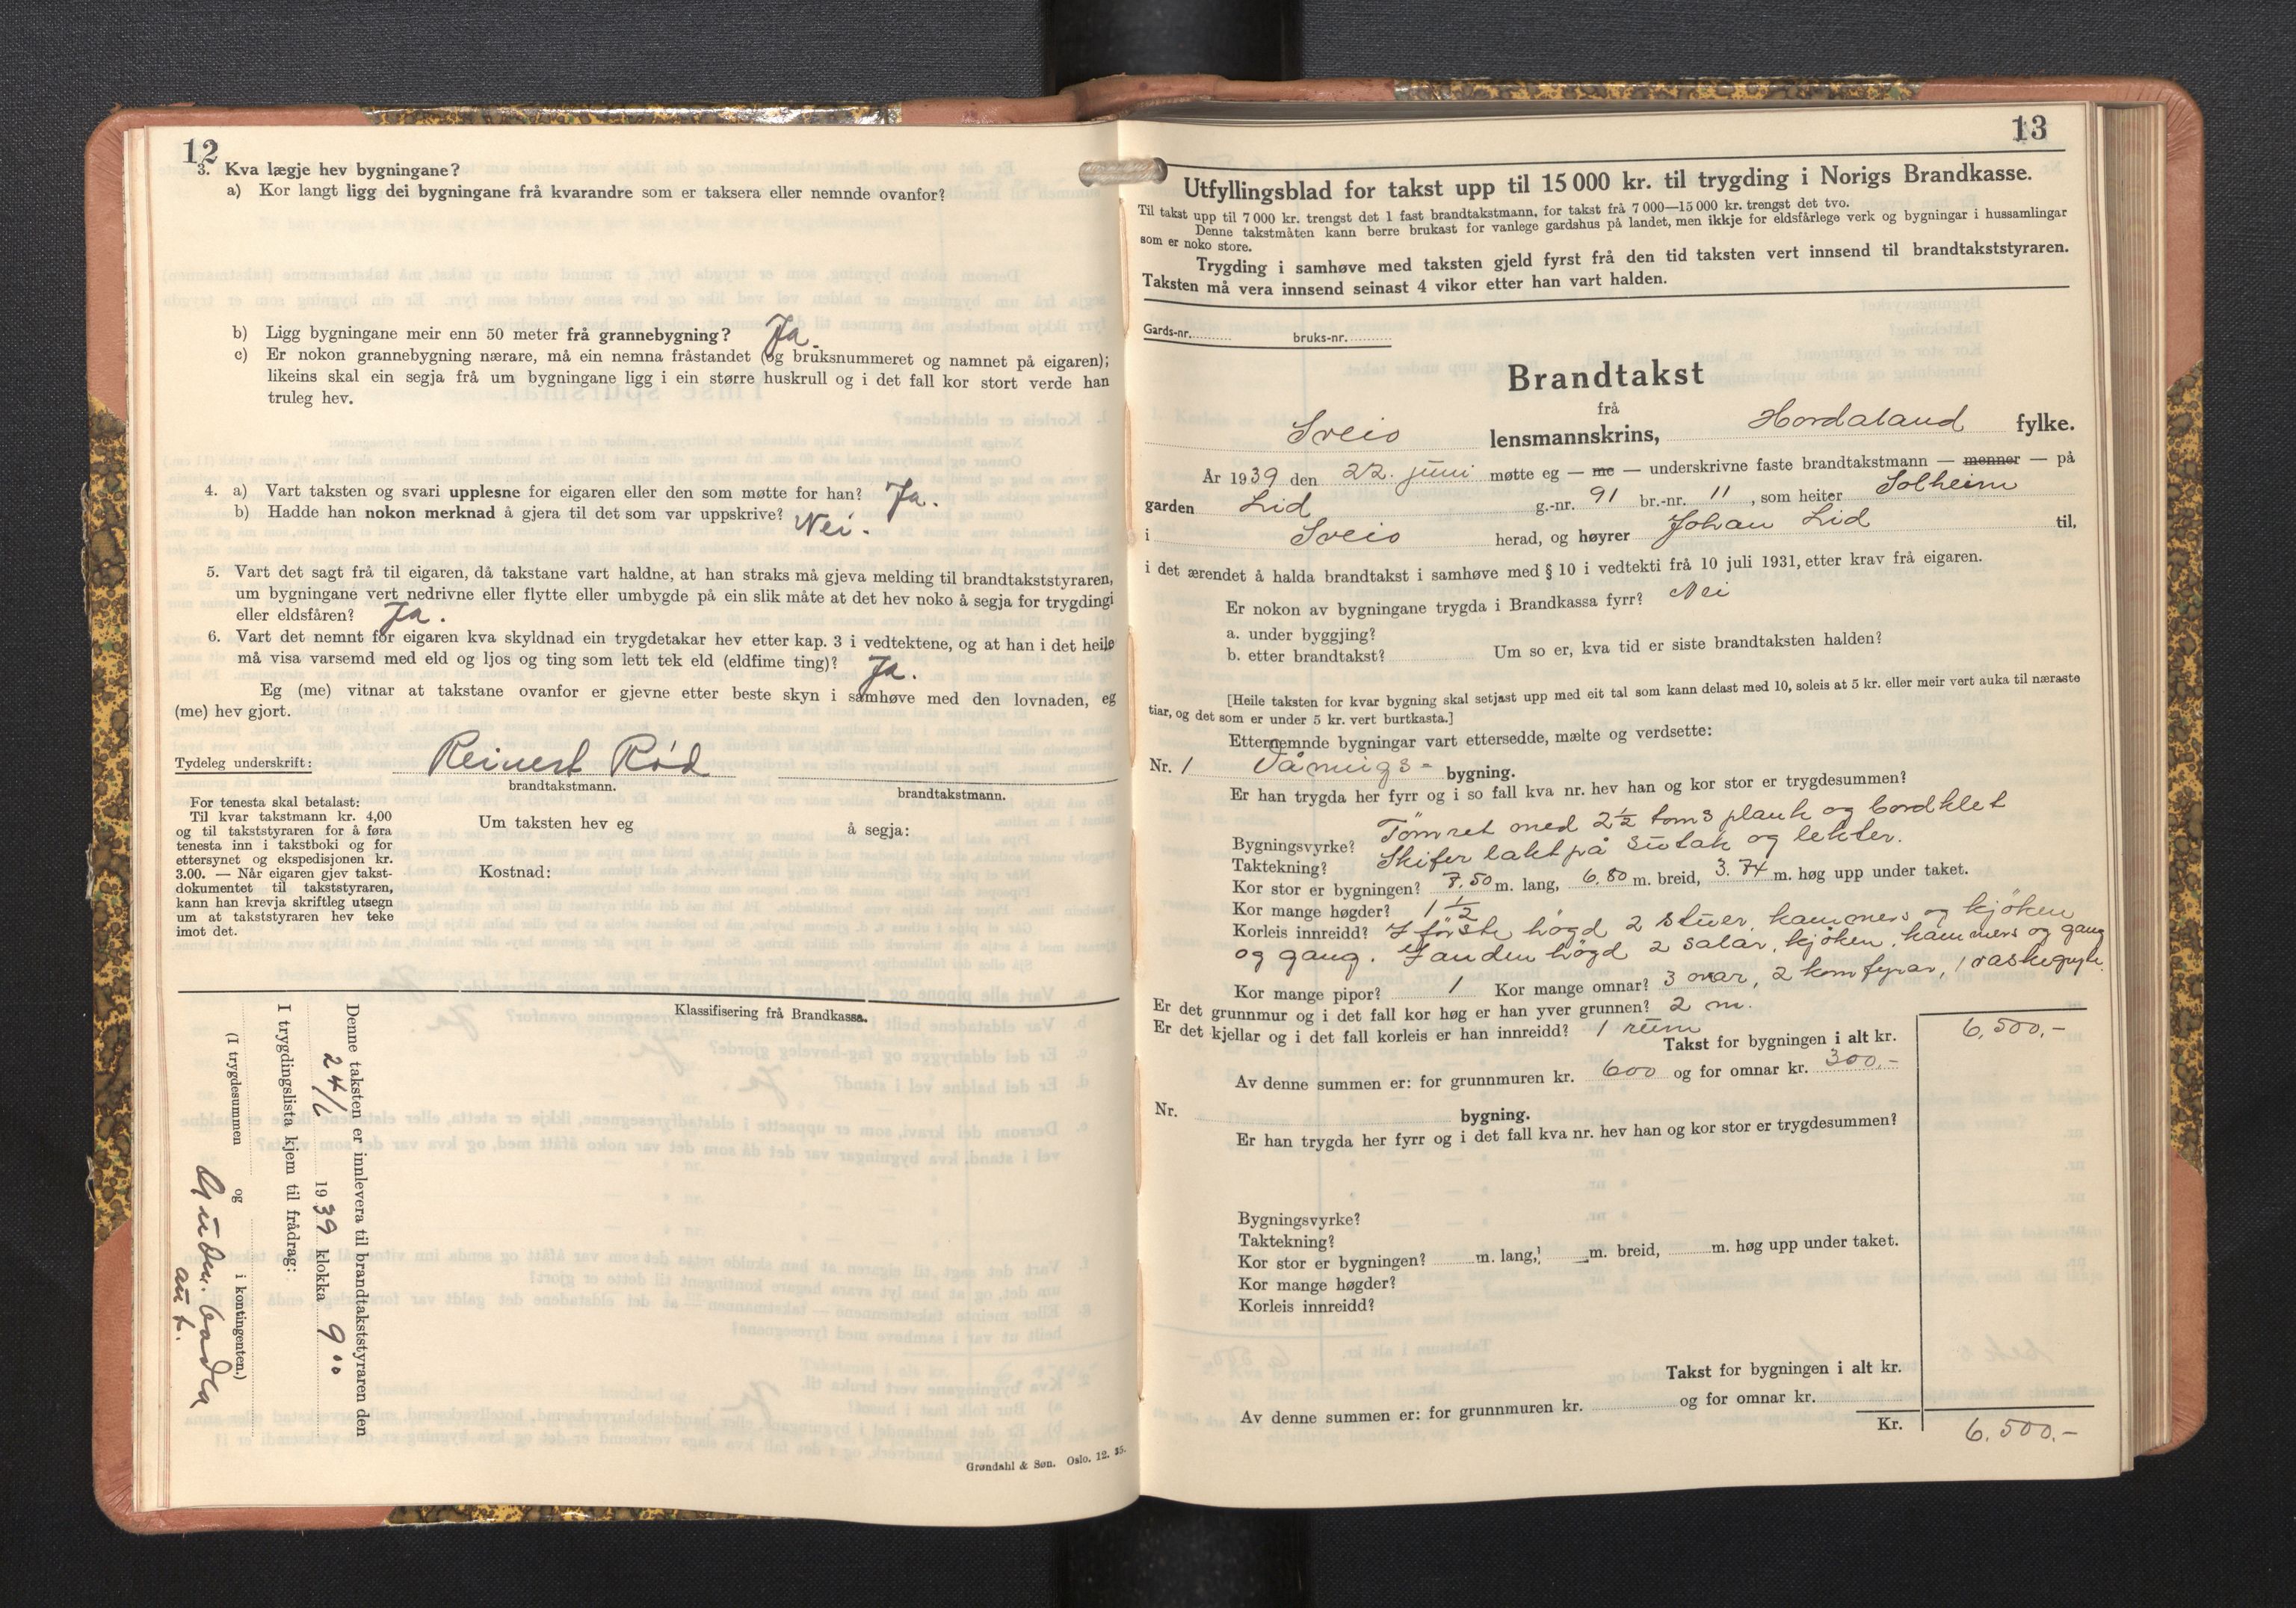 12
3. Kva lægje hev bygningane?
a) Kor langt ligg dei bygningane frå kvarandre som er taksera eller nemnde ovanfor?
b) Ligg bygningane meir enn 50 meter frå grannebygning? Ja.
c) Er nokon grannebygning nærare, må ein nemna fråstandet (og bruksnummeret og namnet på eigaren);
likeins skal ein segja frå um bygningane ligg i ein større huskrull og i det fall kor stort verde han
truleg hev.
4. a) Vart taksten og svari upplesne for eigaren eller den som møtte for han? Ja.
b) Hadde han nokon merknad å gjera til det som var uppskrive? Nei.
5. Vart det sagt frå til eigaren, då takstane vart haldne, at han straks må gjeva melding til brandtakststyraren,
um bygningane vert nedrivne eller flytte eller umbygde på ein slik måte at det hev noko å segja for trygdingi
eller eldsfåren? Ja.
6. Vart det nemnt for eigaren kva skyldnad ein trygdetakar hev etter kap. 3 i vedtektene, og at han i det heile
må visa varsemd med eld og ljos og ting som lett tek eld (eldfime ting)? Ja.
Eg (me) vitnar at takstane ovanfor er gjevne etter beste skyn i samhøve med den lovnaden, eg
(me) hev gjort.
Tydeleg underskrift: Reinert Rød
brandtakstmann. brandtakstmann.
For tenesta skal betalast:
Til kvar takstmann kr. 4,00
og til takststyraren for å føra
tenesta inn i takstboki og for
ettersynet og ekspedisjonen kr.
3.00. — Når eigaren gjev takst-
dokumentet til takststyraren,
kann han krevja skriftleg utsegn
um at takststyraren hev teke
imot det.
Um taksten hev eg å segja:
Kostnad:
Klassifisering frå Brandkassa.
Denne taksten er innlevera til brandtakststyraren den
24/6 1939 klokka 9 00
I trygdingslista kjem til frådrag:
(I trygdesummen og i kontingenten.)
aut.
Grøndahl & Søn. Oslo. 12. 35.
13
Utfyllingsblad for takst upp til 15 000 kr. til trygding i Norigs Brandkasse.
Til takst upp til 7 000 kr. trengst det 1 fast brandtakstmann, for takst frå 7 000—15 000 kr. trengst det tvo.
Denne takstmåten kann berre brukast for vanlege gardshus på landet, men ikkje for eldsfårlege verk og bygningar i hussamlingar
som er noko store.
Trygding i samhøve med taksten gjeld fyrst frå den tid taksten vert innsend til brandtakststyraren.
Taksten må vera innsend seinast 4 vikor etter han vart halden.
Gards-nr. bruks-nr.
Brandtakst
frå
Sveio lensmannskrins, Hordaland fylke.
År 1939 den 22. juni møtte eg — me — underskrivne faste brandtakstmann — menner — på
garden Lid g.-nr. 91 br.-nr. 11, som heiter Solheim
i Sveio herad, og høyrer Johan Lid til,
i det ærendet å halda brandtakst i samhøve med § 10 i vedtekti frå 10 juli 1931, etter krav frå eigaren.
Er nokon av bygningane trygda i Brandkassa fyrr? Nei
a. under byggjing?
b. etter brandtakst? Um so er, kva tid er siste brandtaksten halden?
[Heile taksten for kvar bygning skal setjast upp med eit tal som kann delast med 10, soleis at 5 kr. eller meir vert auka til næraste
tiar, og det som er under 5 kr. vert burtkasta.]
Etternemnde bygningar vart ettersedde, mælte og verdsette:
Nr. 1 Våningsbygning.
Er han trygda her fyrr og i so fall kva nr. hev han og kor stor er trygdesummen?
Bygningsvyrke? Tømret med 2½ toms plank og bordklet
Taktekning? Skifer lakt på sutak og lekter.
Kor stor er bygningen? 7.50 m. lang, 6.80 m. breid, 3.74 m. høg upp under taket.
Kor mange høgder? 1½
Korleis innreidd? I første høgd 2 stuer, kammers og kjøken
og gang. I anden høgd 2 salar, kjøken, kammers og gang
Kor mange pipor? 1 Kor mange omnar? 3 omnar, 2 komfyrar, 1 vaskegryte.
Er det grunnmur og i det fall kor høg er han yver grunnen? 2 m.
Er det kjellar og i det fall korleis er han innreidd? 1 rum
Takst for bygningen i alt kr. 6,500,-
Av denne summen er: for grunnmuren kr. 600 og for omnar kr. 300,-
Nr. bygning.
Er han trygda her fyrr og i det fall kva nr. hev han og kor stor er trygdesummen?
Bygningsvyrke?
Taktekning?
Kor stor er bygningen? m. lang, m. breid, m. høg upp under taket.
Kor mange høgder?
Korleis innreidd?
Takst for bygningen i alt kr.
Av denne summen er: for grunnmuren kr. og for omnar kr.
Kr. 6,500.-